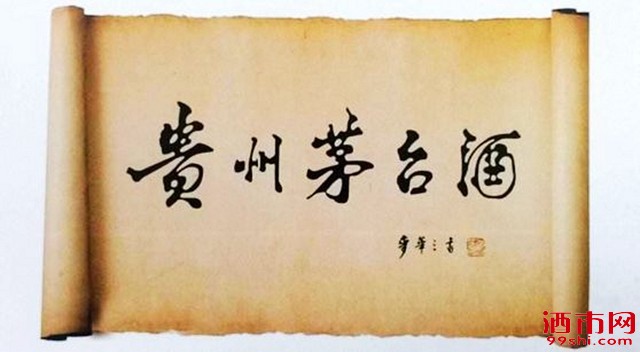 貴州茅台酒
麥華三書
酒市网
99shi.com